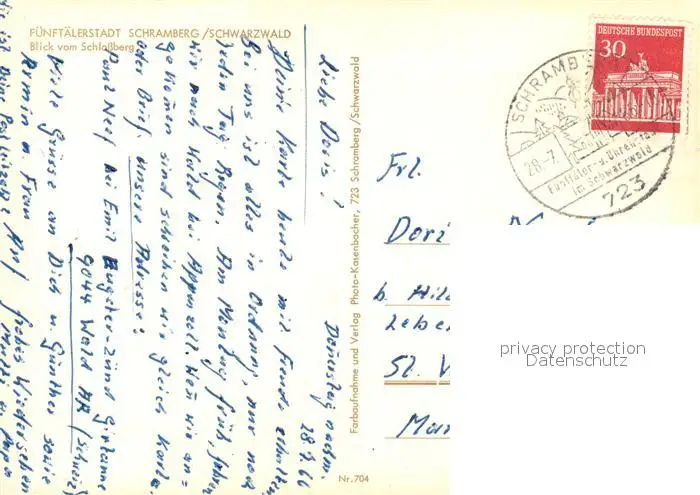 FÜNFTÄLERSTADT SCHRAMBERG/SCHWARZWALD
Blick vom Schloßberg
Donnerstag nachm.
28.7.66
Liebe Doris!
Deine Karte heute mit Freude erhalten.
Bei uns ist alles in Ordnung, nur noch
jeden Tag Regen. Am Montag früh fahren
wir nach Wald bei Appenzell. Wenn wir an=
gekommen sind schreiben wir gleich Karte
oder Brief. Unsere Adresse:
Paul Neef bei Emil Zünd
9044 Wald AR (Schweiz)
Viele Grüsse an Dich u. Günther sowie
u. Frau
frohes Wiedersehen
u. Papa
Farbaufnahme und Verlag Photo-Kasenbacher, 723 Schramberg/Schwarzwald
Nr. 704
DEUTSCHE BUNDESPOST
30
SCHRAMBE
28.-7.
Fünftäler- u. Uhren
im Schwarzwald
723
Frl.
Dori
b. Hild
Leber
St.
privacy protection
Datenschutz